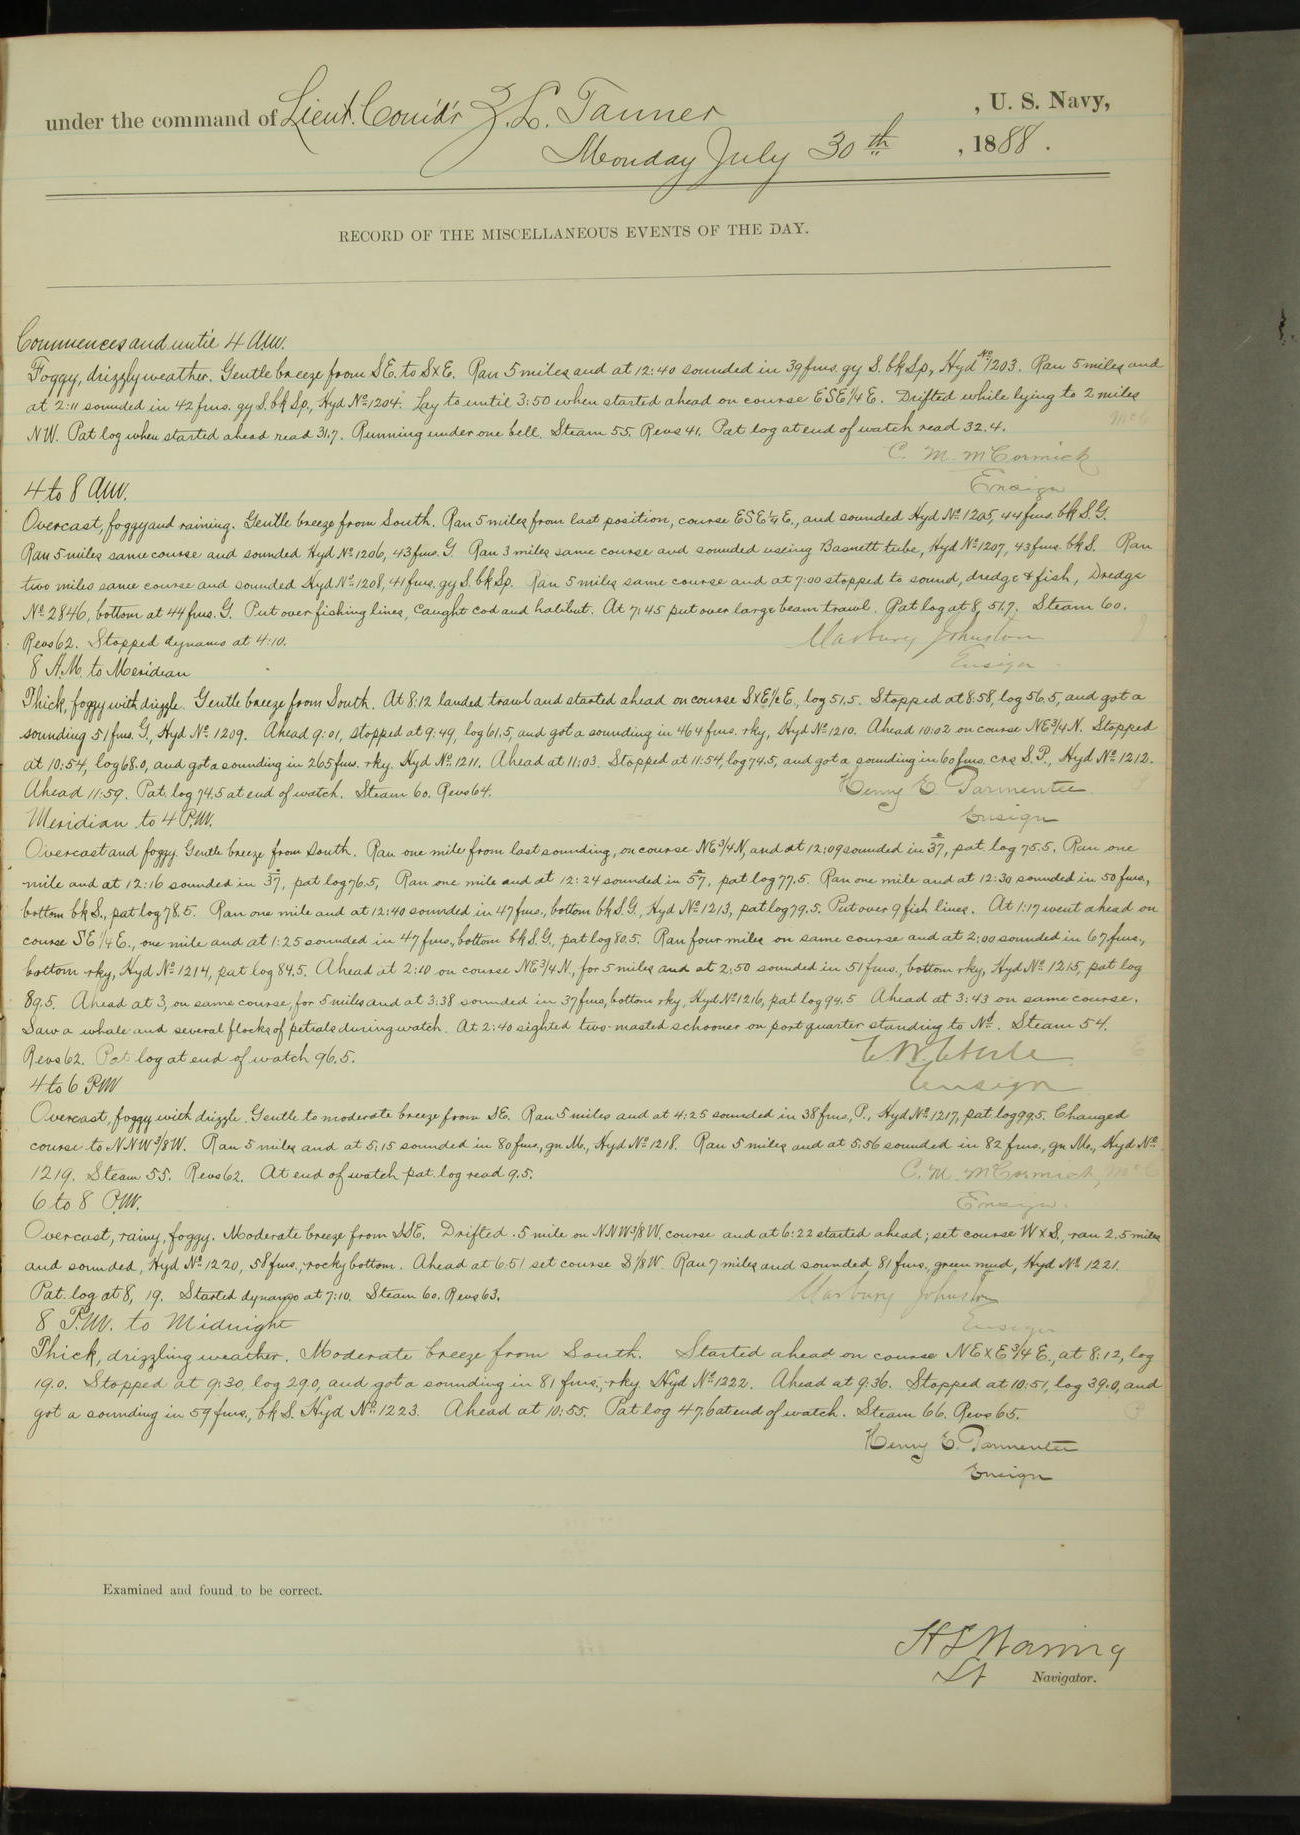 under the command of Lieut. Com'd'r Z. L. Tanner , U. S. Navy,
Monday July 30th , 1888.
RECORD OF THE MISCELLANEOUS EVENTS OF THE DAY.
Commences and until 4 A.M.
Foggy, drizzly weather. Gentle breeze from SE. to SxE. Ran 5 miles and at 12:40 sounded in 39 fms. gy S. bk Sp, Hyd No 1203. Ran 5 miles and
at 2:11 sounded in 42 fms. gy S. bk Sp, Hyd No 1204. Lay to until 3:50 when started ahead on course ESE1/4E. Drifted while lying to 2 miles
NW. Pat log when started ahead read 31.7. Running under one bell. Steam 55. Revs 41. Pat log at end of watch read 32.4. McC
C. M. McCormick
Ensign
4 to 8 A.M.
Overcast, foggy and raining. Gentle breeze from South. Ran 5 miles from last position, course ESE1/4E., and sounded Hyd No 1205, 44 fms. bk S. G.
Ran 5 miles same course and sounded Hyd No 1206, 43 fms. G. Ran 3 miles same course and sounded using Basnett tube, Hyd No 1207, 43 fms. bk S. Ran
two miles same course and sounded Hyd No 1208, 41 fms. gy S. bk Sp. Ran 5 miles same course and at 7:00 stopped to sound, dredge & fish, Dredge
No 2846, bottom at 44 fms. G. Put over fishing lines, Caught cod and halibut. At 7:45 put over large beam trawl. Pat log at 8, 51.7. Steam 60.
Revs 62. Stopped dynamo at 4:10.
Marbury Johnston
Ensign.
8 A.M. to Meridian
Thick, foggy with drizzle. Gentle breeze from South. At 8:12 landed trawl and started ahead on course SxE1/2E, log 51.5. Stopped at 8:58, log 56.5, and got a
sounding 51 fms. G., Hyd No 1209. Ahead 9:01, stopped at 9:49, log 61.5, and got a sounding in 464 fms. rky, Hyd No 1210. Ahead 10:02 on course NE3/4N. Stopped
at 10:54, log 68.0, and got a sounding in 265 fms. rky. Hyd No 1211. Ahead at 11:03. Stopped at 11:54, log 74.5, and got a sounding in 60 fms. crs S. P., Hyd No 1212.
Ahead 11:59. Pat. log 74.5 at end of watch. Steam 60. Revs 64.
Henry E. Parmenter
Ensign
Meridian to 4 P.M.
Overcast and foggy. Gentle breeze from South. Ran one mile from last sounding, on course NE3/4N, and at 12:09 sounded in 37, pat. log 75.5. Ran one
mile and at 12:16 sounded in 37, pat log 76.5, Ran one mile and at 12:24 sounded in 57, pat log 77.5. Ran one mile and at 12:30 sounded in 50 fms.,
bottom bk S., pat log 78.5. Ran one mile and at 12:40 sounded in 47 fms., bottom bk S. G., Hyd No 1213, pat log 79.5. Put over 9 fish lines. At 1:17 went ahead on
course SE1/4E., one mile and at 1:25 sounded in 47 fms., bottom bk S. G., pat log 80.5. Ran four miles on same course and at 2:00 sounded in 67 fms.,
bottom rky, Hyd No 1214, pat log 84.5. Ahead at 2:10 on course NE3/4N., for 5 miles and at 2:50 sounded in 51 fms., bottom rky, Hyd No 1215, pat log
89.5. Ahead at 3, on same course, for 5 miles and at 3:38 sounded in 37 fms, bottom rky. Hyd No 1216, pat log 94.5 Ahead at 3:43 on same course.
Saw a whale and several flocks of petrals during watch. At 2:40 sighted two-masted schooner on port quarter standing to Nd. Steam 54.
Revs 62. Pat log at end of watch 96.5.
E. W. Eberle
Ensign
4 to 6 P.M
Overcast, foggy with drizzle. Gentle to moderate breeze from SE. Ran 5 miles and at 4:25 sounded in 38 fms, P., Hyd No 1217, pat. log 99.5. Changed
course to NNW3/8W. Ran 5 miles and at 5:15 sounded in 80 fms., gn M., Hyd No 1218. Ran 5 miles and at 5:56 sounded in 82 fms., gn M., Hyd No
1219. Steam 55. Revs 62. At end of watch pat. log read 9.5.
C. M. McCormick, McC
Ensign.
6 to 8 P.M.
Overcast, rainy, foggy. Moderate breeze from SSE. Drifted .5 mile on NNW3/8W. course and at 6:22 started ahead; set course WxS, ran 2.5 miles
and sounded, Hyd No 1220, 58 fms., rocky bottom. Ahead at 6:51 set course S1/8W. Ran 7 miles and sounded 81 fms., green mud, Hyd No 1221.
Pat. log at 8, 19. Started dynamo at 7:10. Steam 60. Revs 63.
Marbury Johnston
Ensign
8 P.M. to Midnight
Thick, drizzling weather. Moderate breeze from South. Started ahead on course NExE3/4E., at 8:12, log
19.0. Stopped at 9:30, log 29.0, and got a sounding in 81 fms., rky Hyd No 1222. Ahead at 9:36. Stopped at 10:51, log 39.0, and
got a sounding in 59 fms., bk S. Hyd No 1223. Ahead at 10:55. Pat log 47.6 at end of watch. Steam 66. Revs 65.
Henry E. Parmenter
Ensign
Examined and found to be correct.
H S Waring
Lt Navigator.